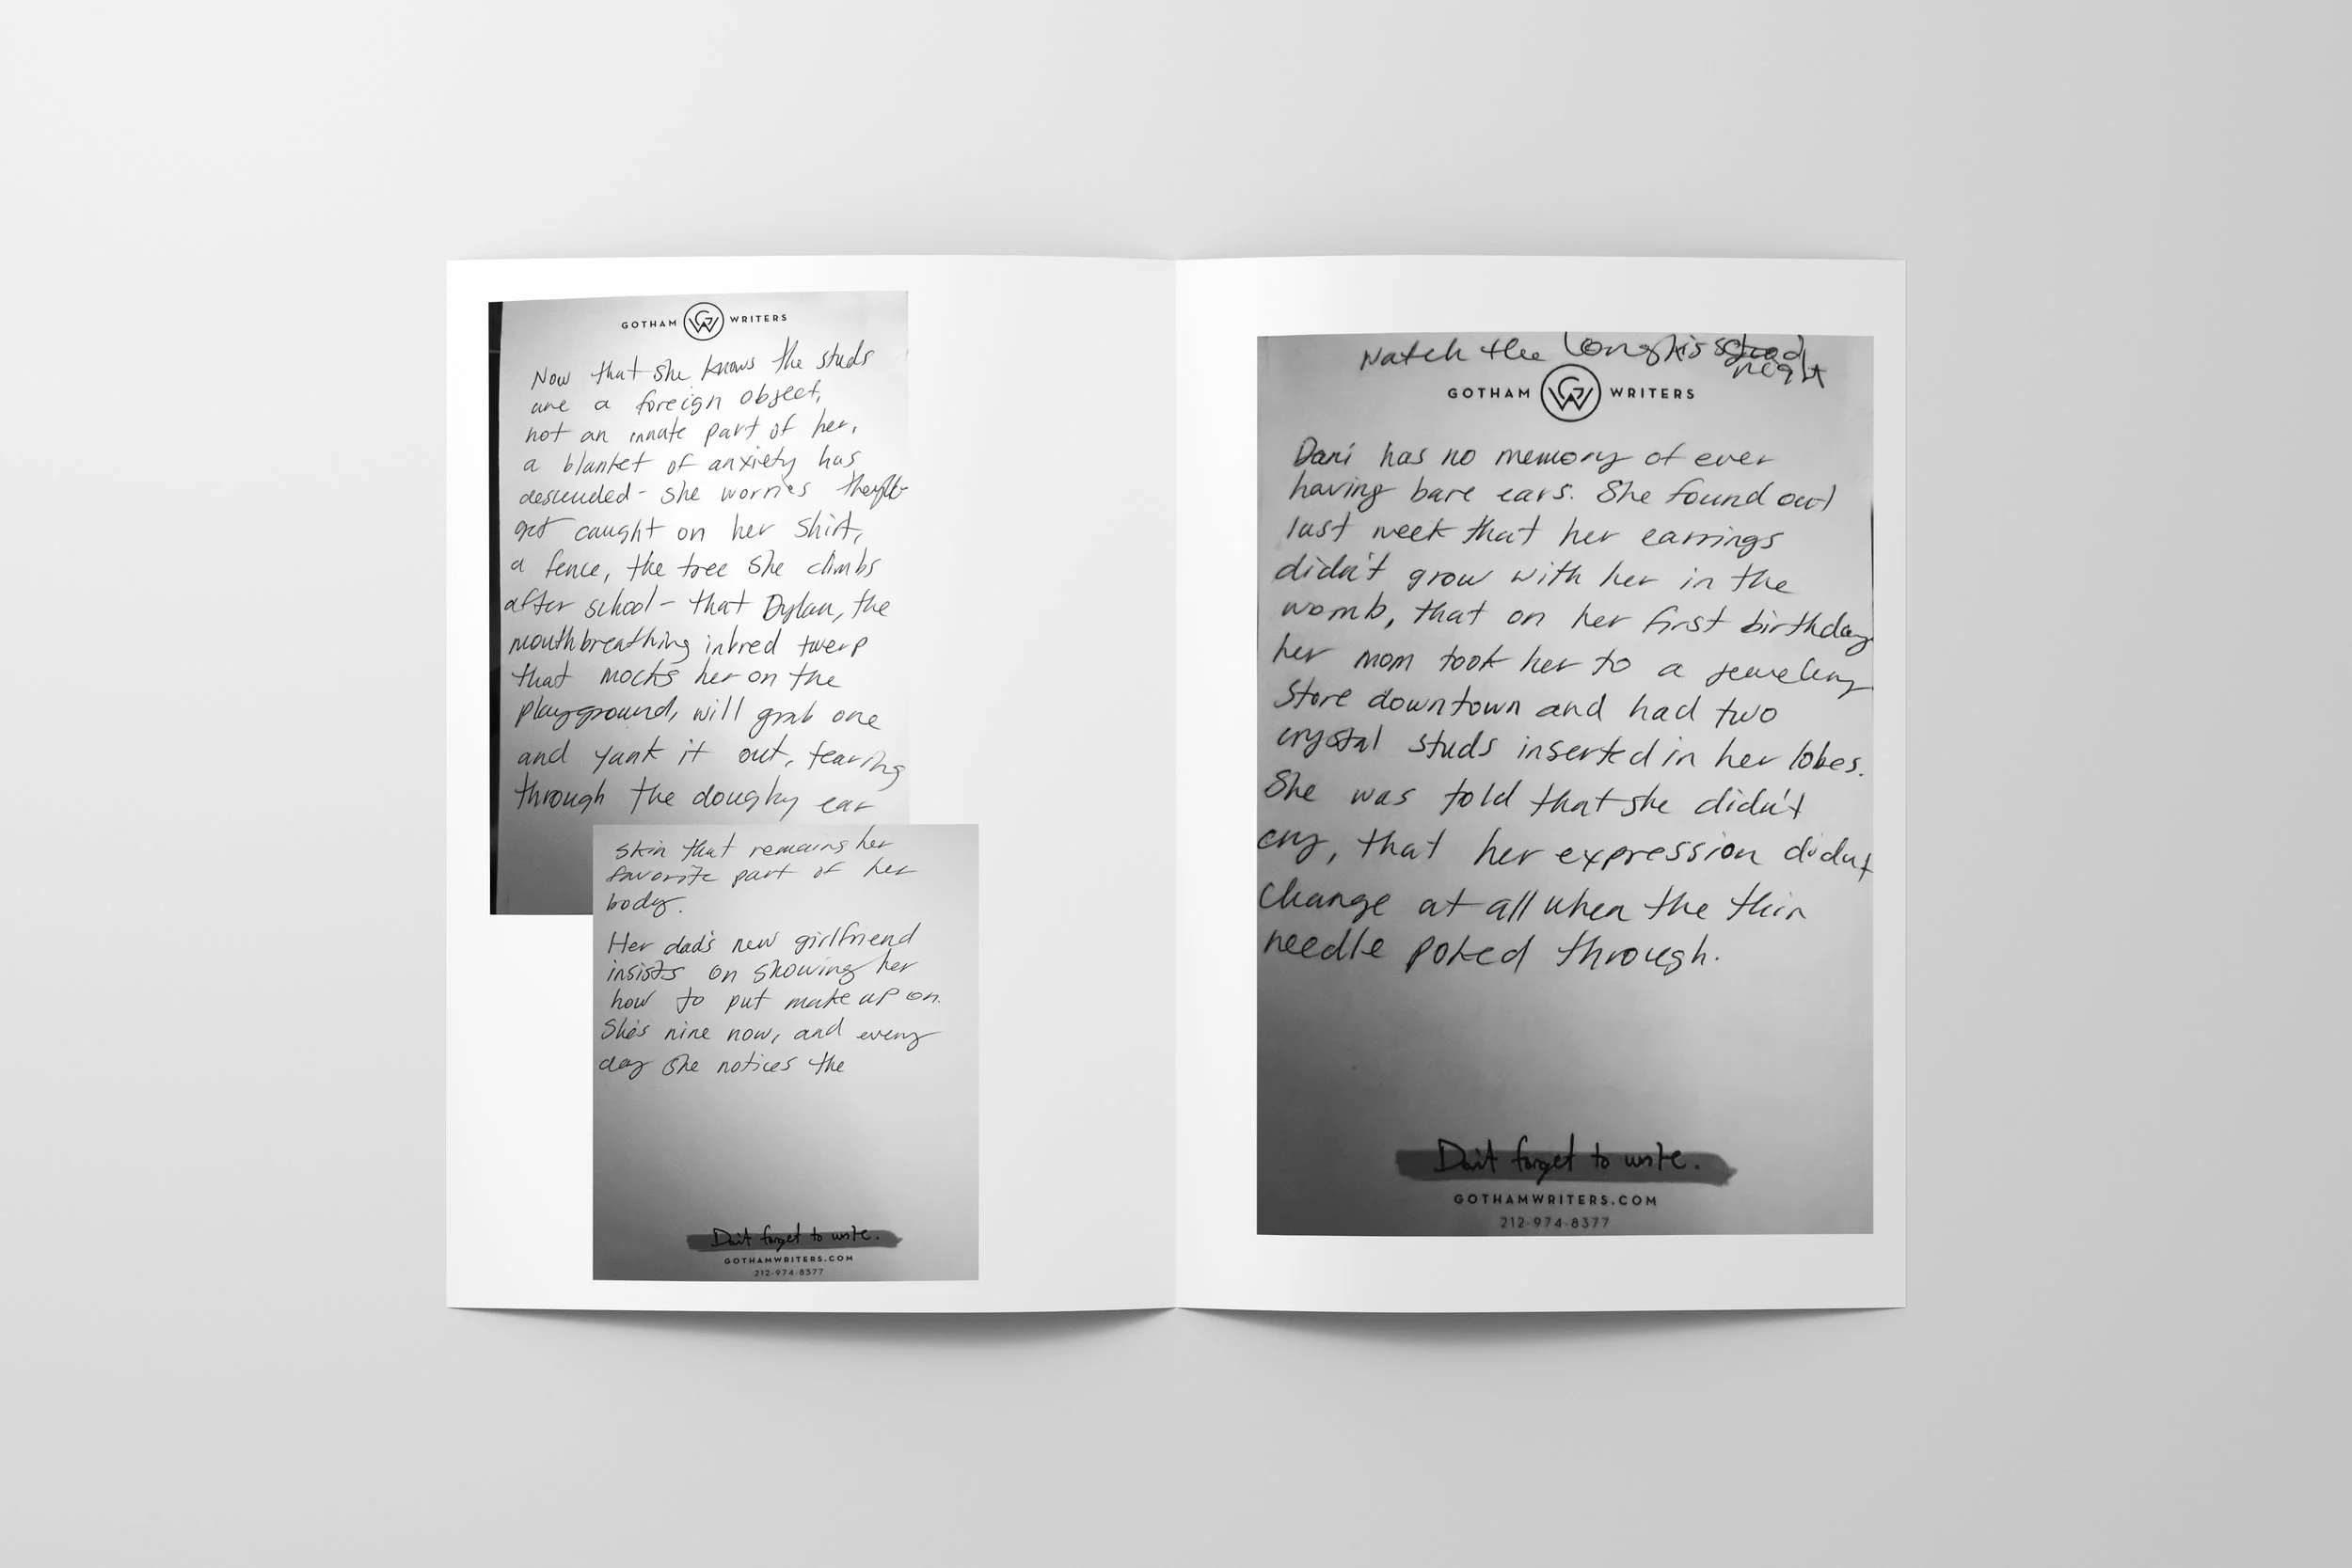 GOTHAM GW WRITERS
Now that she knows the studs
are a foreign object,
not an innate part of her,
a blanket of anxiety has
descended - she worries they'll
get caught on her shirt,
a fence, the tree she climbs
after school - that Dylan, the
mouthbreathing inbred twerp
that mocks her on the
playground, will grab one
and yank it out, tearing
through the doughy ear
skin that remains her
favorite part of her
body.
Her dad's new girlfriend
insists on showing her
how to put make up on.
She's nine now, and every
day she notices the
Don't forget to write.
GOTHAMWRITERS.COM
212-974-8377
Watch the Longkiss
night
GOTHAM GW WRITERS
Dani has no memory of ever
having bare ears. She found out
last week that her earrings
didn't grow with her in the
womb, that on her first birthday
her mom took her to a jewelry
store downtown and had two
crystal studs inserted in her lobes.
She was told that she didn't
cry, that her expression didn't
change at all when the thin
needle poked through.
Don't forget to write.
GOTHAMWRITERS.COM
212-974-8377